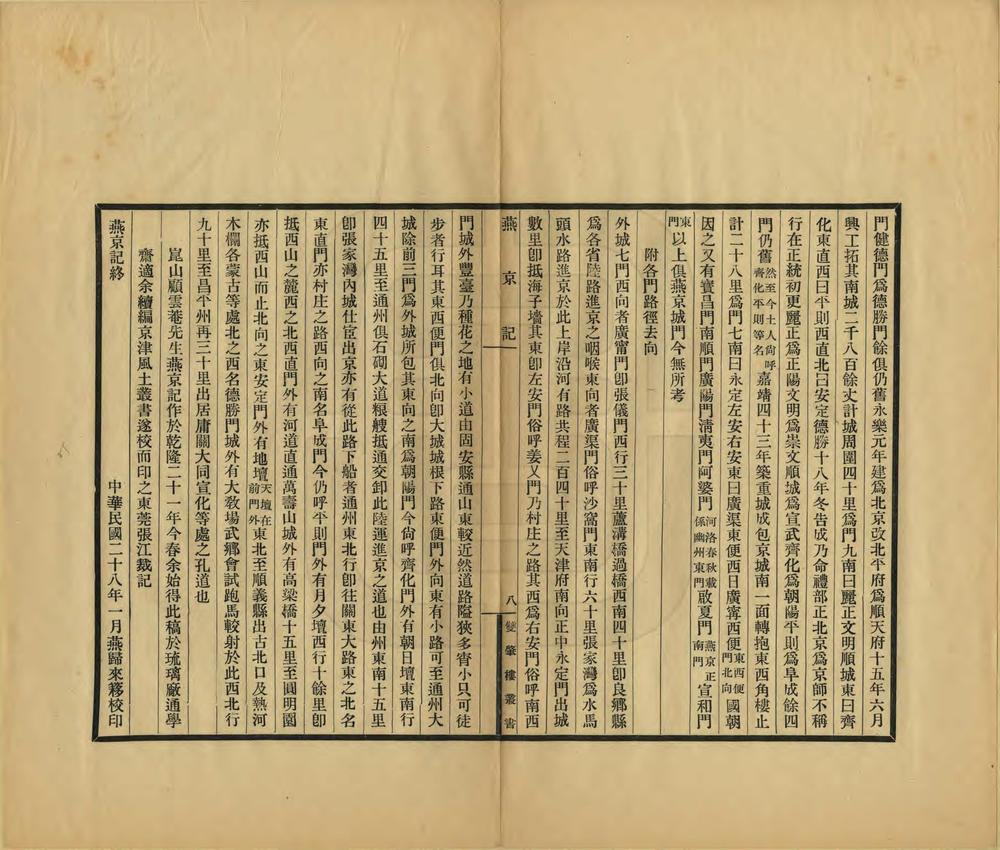 門健德門爲德勝門餘俱仍舊永樂元年建爲北京改北平府爲順天府十五年六月
興工拓其南城二千八百餘丈計城周圍四十里爲門九南曰麗正文明順城東曰齊
化東直西曰平則西直北曰安定德勝十八年冬告成乃命禮部正北京爲京師不稱
行在正統初更麗正爲正陽文明爲崇文順城爲宣武齊化爲朝陽平則爲阜成餘四
門仍舊然至今土人尙呼齊化平則等名嘉靖四十三年築重城成包京城南一面轉抱東西角樓止
計二十八里爲門七南曰永定左安右安東曰廣渠東便西曰廣寗西便東西便門北向國朝
因之又有寶昌門南順門廣陽門淸夷門阿婆門河洛春秋載係幽州東門啟夏門燕京正南門宣和門
東門以上俱燕京城門今無所考
附各門路徑去向
外城七門西向者廣甯門卽張儀門西行三十里蘆溝橋過橋西南四十里卽良鄉縣
爲各省陸路進京之咽喉東向者廣渠門俗呼沙窩門東南行六十里張家灣爲水馬
頭水路進京於此上岸沿河有路共程二百四十里至天津府南向正中永定門出城
數里卽抵海子墻其東卽左安門俗呼姜又門乃村庄之路其西爲右安門俗呼南西
燕京記
八
雙肇樓叢書
門城外豐臺乃種花之地有小道由固安縣通山東較近然道路隘狹多宵小只可徒
步者行耳其東西便門俱北向卽大城城根下路東便門外向東有小路可至通州大
城除前三門爲外城所包其東向之南爲朝陽門今尙呼齊化門外有朝日壇東南行
四十五里至通州俱石砌大道粮艘抵通交卸此陸運進京之道也由州東南十五里
卽張家灣內城仕宦出京亦有從此路下船者通州東北行卽往關東大路東之北名
東直門亦村庄之路西向之南名阜成門今仍呼平則門外有月夕壇西行十餘里卽
抵西山之麓西之北西直門外有河道直通萬壽山城外有高梁橋十五里至圓明園
亦抵西山而止北向之東安定門外有地壇天壇在前門外東北至順義縣出古北口及熱河
木欄各蒙古等處北之西名德勝門城外有大敎場武鄉會試跑馬較射於此西北行
九十里至昌平州再三十里出居庸關大同宣化等處之孔道也
崑山顧雲菴先生燕京記作於乾隆二十一年今春余始得此稿於琉璃廠通學
齋適余續編京津風土叢書遂校而印之東莞張江裁記
中華民國二十八年一月燕歸來簃校印
燕京記終